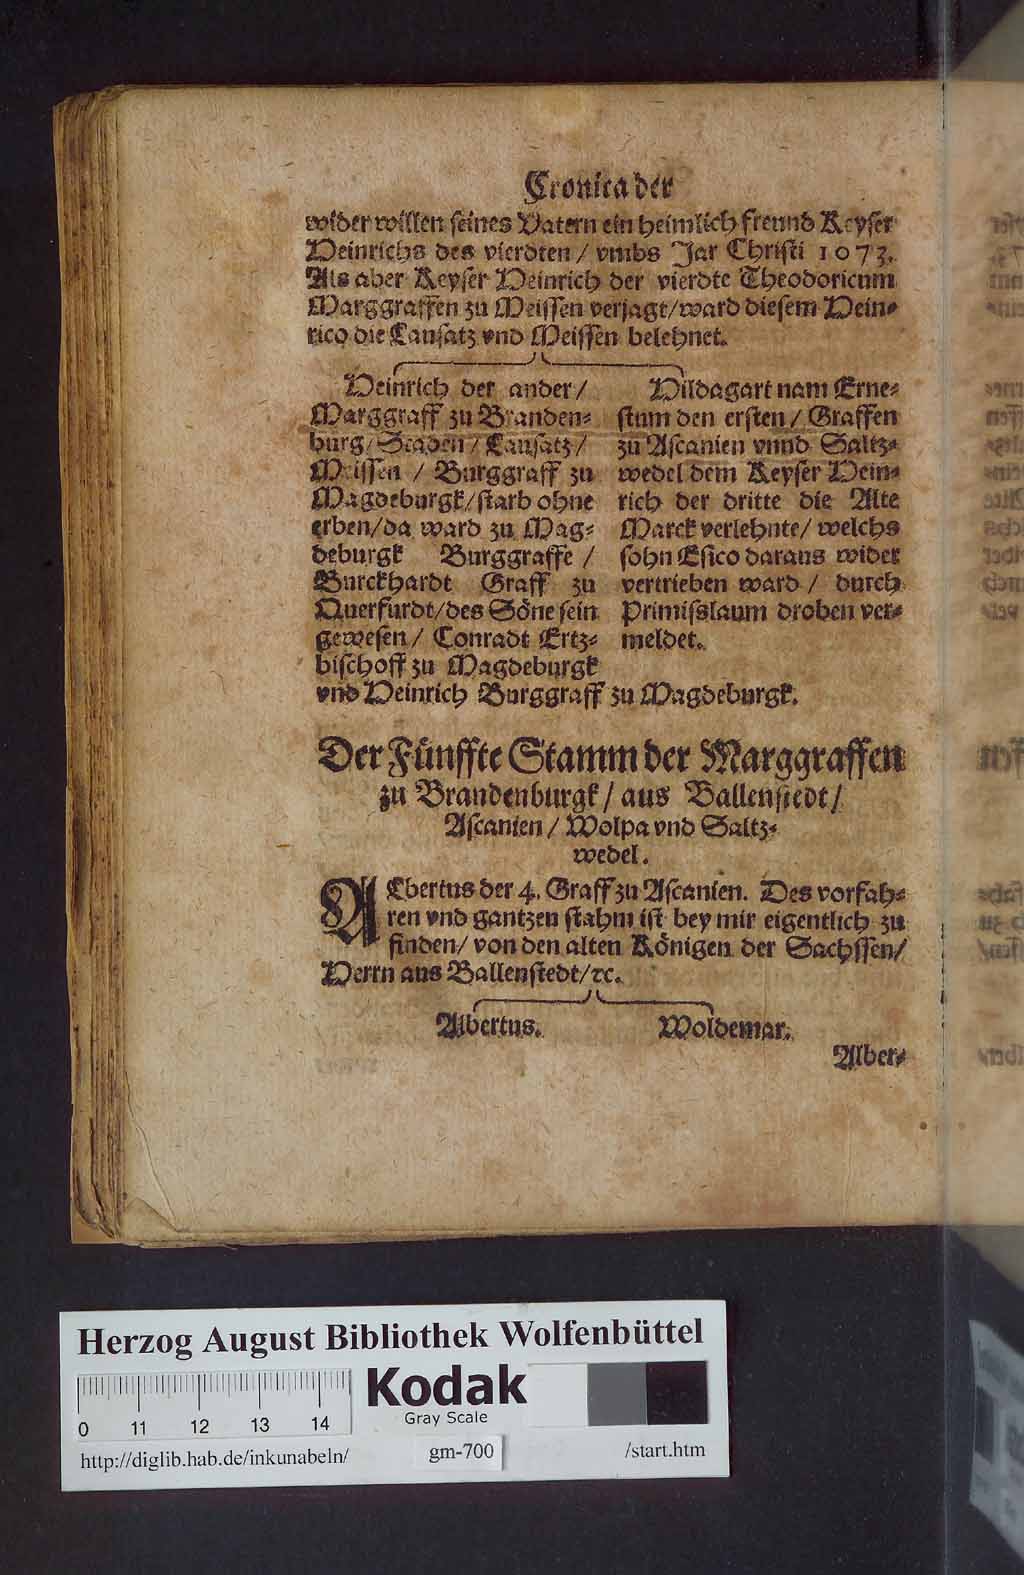 Cronica der
wider willen seines Vatern ein heimlich freund Keyser
Heinrichs des vierdten / vmbs Jar Christi 1073.
Als aber Keyser Heinrich der vierdte Theodoricum
Marggraffen zu Meissen verjagt/ward diesem Hein-
rico die Lausatz vnd Meissen belehnet.
Heinrich der ander/
Marggraff zu Branden-
burg/Staden/Lausatz/
Meissen / Burggraff zu
Magdeburgk/starb ohne
erben/da ward zu Mag-
deburgk Burggraffe /
Burckhardt Graff zu
Querfurdt/des Söne sein
gewesen / Conradt Ertz-
bischoff zu Magdeburgk
vnd Heinrich Burggraff zu Magdeburgk.
Hildagart nam Erne-
stum den ersten / Graffen
zu Ascanien vnnd Saltz-
wedel dem Keyser Hein-
rich der dritte die Alte
Marck verlehnte/ welchs
sohn Esico daraus wider
vertrieben ward / durch
Primisslaum droben ver-
meldet.
Der Fünffte Stamm der Marggraffen
zu Brandenburgk / aus Ballenstedt /
Ascanien / Wolpa vnd Saltz-
wedel.
ALbertus der 4. Graff zu Ascanien. Des vorfah-
ren vnd gantzen stahm ist bey mir eigentlich zu
finden/ von den alten Königen der Sachssen/
Herrn aus Ballenstedt/ꝛc.
Albertus. Woldemar.
Alber-
Herzog August Bibliothek Wolfenbüttel
Kodak
Gray Scale
0 11 12 13 14
http://diglib.hab.de/inkunabeln/ gm-700 /start.htm